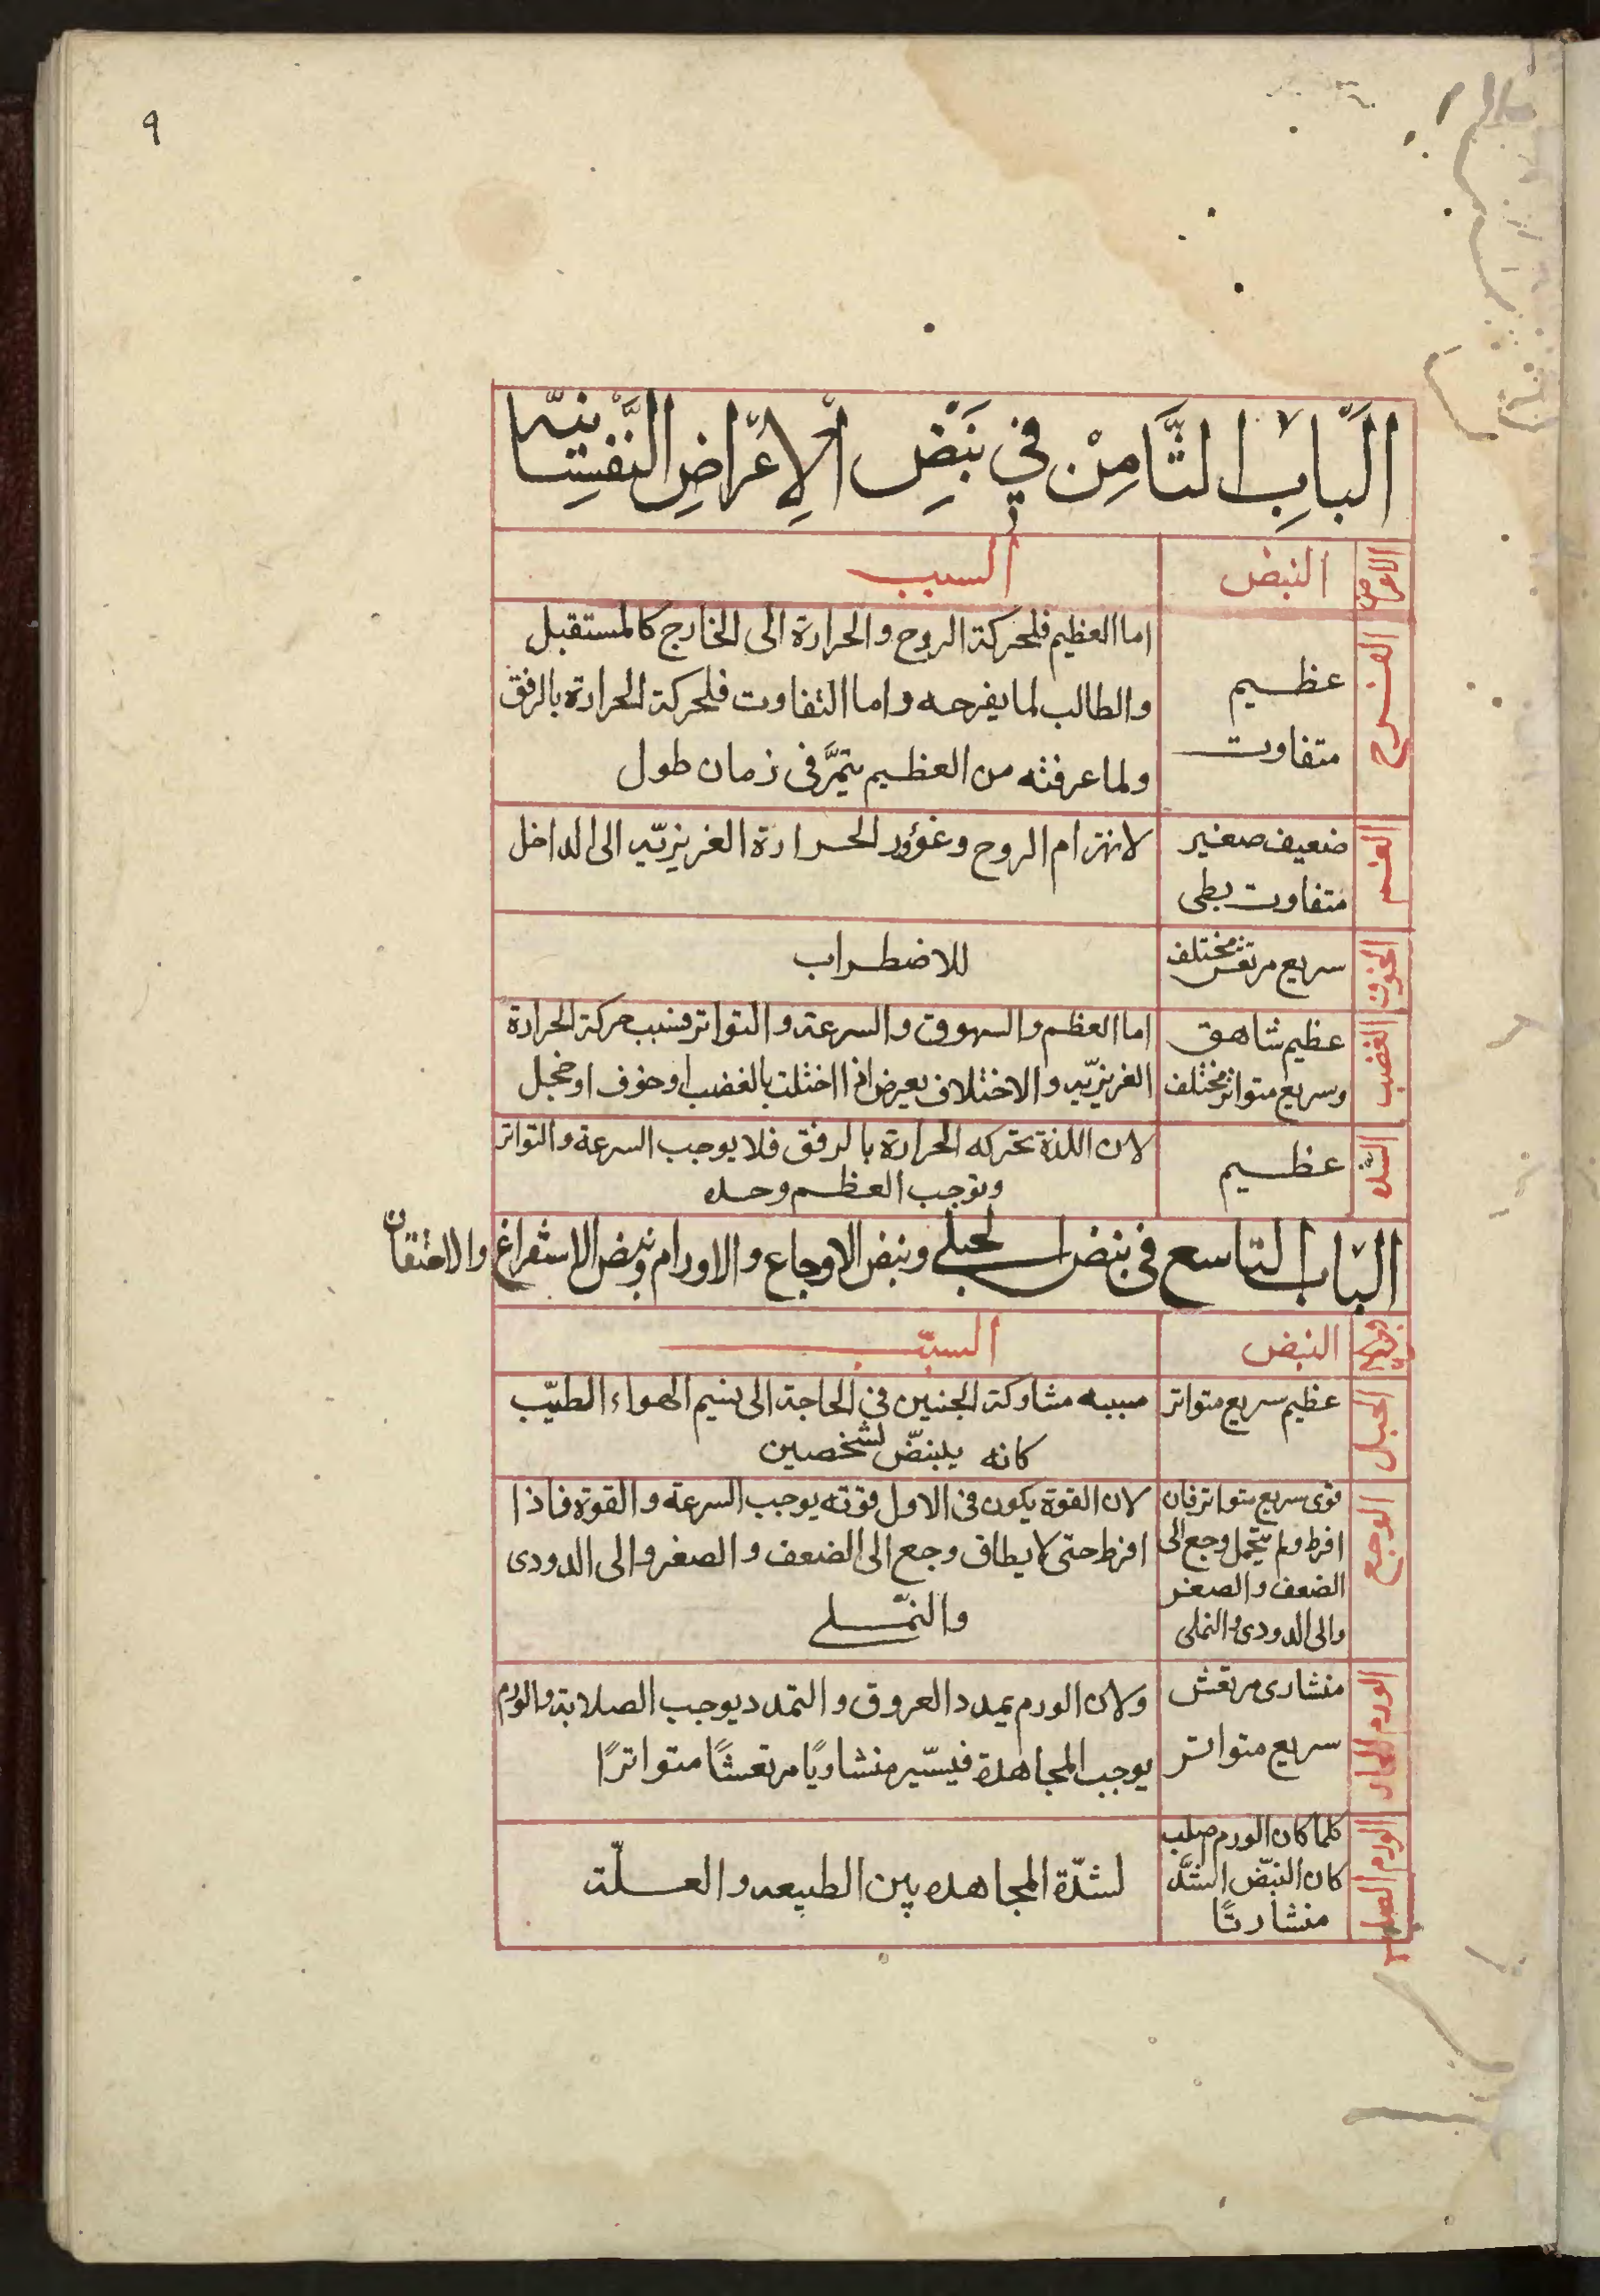 ٩
اَلبَابِ الثَّامِنْ في نَبَضِ الِاعرَاضِ النَّفسَانيّه
الاعراض
النبض
السبب
الفرح
عظيم
متفاوت
اما العظيم فلحركة الروح والحرارة الى الخارج كالمستقبل
والطالب لما يفرحه واما التفاوت فلحركة الحرارة بالرفق
ولما عرفته من العظيم يتمَّ فى زمان طول
الغم
ضعيف صغير
متفاوت بطى
لانهزام الروح وغؤور الحرارة الغريزيّه الى الداخل
الخوف
سريع مرتعش مختلف
للاضطراب
الغضب
عظيم شاهق
وسريع متواتر مختلف
اما العظم والسهوق والسرعة والتواتر فبسبب حركة الحرارة
الغريزيّه والاختلاف يعرض اذا اختلت بالغضب او خوف او خجل
عظيم
لان اللذة تحركه الحرارة بالرفق فلا يوجب السرعة والتواتر
وتوجب العظم وحده
الباب التاسع فى نبض الحبلى ونبض الاوجاع والاورام ونبض الاستفراغ والاحتقان
النبض
السبب
الحبل
عظيم سريع متواتر
سببه مشاركة الجنين فى الحاجة الى نسيم الهواء الطيّب
كانه ينبضّ لشخصين
الوجع
قوى سريع متواتر فان
افرط ولم يتحمل رجع الى
الضعف والصغر
والى الدودى والنملى
لان القوة يكون فى الاول قوته يوجب السرعة والقوة فاذا
افرط حتى لا يطاق رجع الى الضعف والصغر والى الدودى
والنمّلى
الورم الحار
منشارى مرتعش
سريع متواتر
ولان الورم يمدد العروق والتمدد يوجب الصلابة والورم
يوجب المجاهدة فيسّير منشاريًا مرتعشًا متواترًا
الورم الصلب
كلما كان الورم صلب
كان النبضّ اشدَّ
منشاريًا
لشدّة المجاهده بين الطبيعه والعلّة